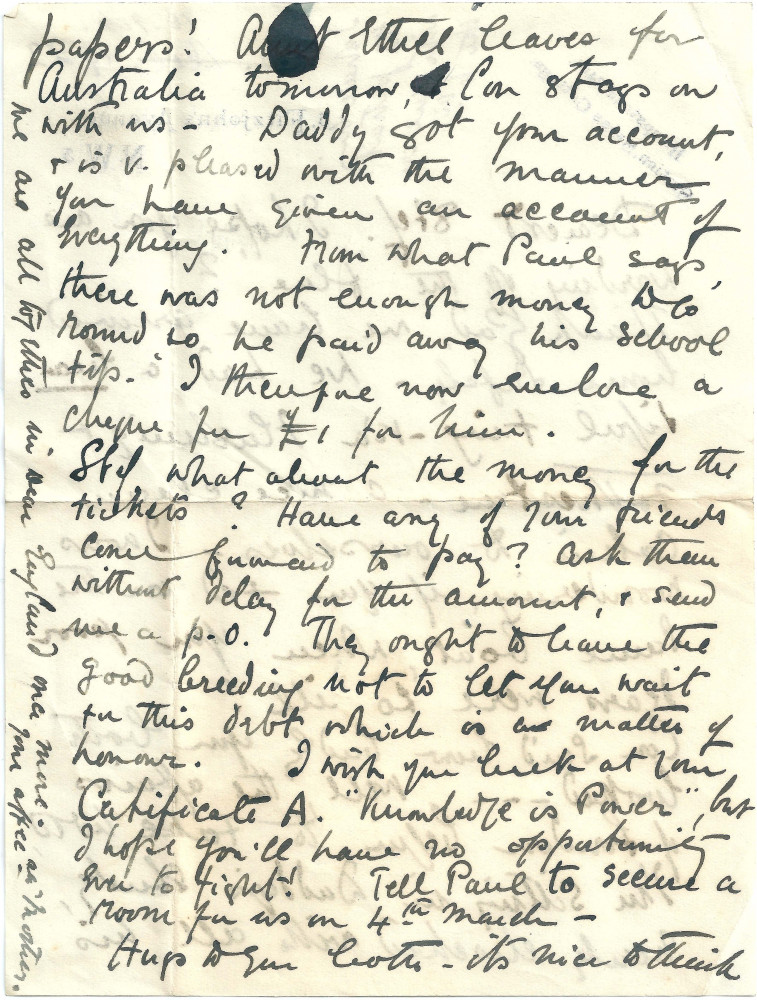 papers! Aunt Ethel leaves for
Australia tomorrow, & Con stays on
with us - Daddy got your account,
& is v. pleased with the manner
you have given an account of
everything. From what Paul says,
there was not enough money to go
round so he paid away his school
tip. I therefore now enclose a
cheque for £1 for him.
Stef what about the money for the
tickets? Have any of your friends
come forward to pay? Ask them
without delay for the amount, & send
me a p.o. They ought to have the
good breeding not to let you wait
for this debt which is a matter of
honour. I wish you luck at your
Certificate A. "Knowledge is Power", but
I hope you'll have no opportunity
ever to fight! Tell Paul to secure a
room for us on 4th March -
Hugs to you both - it's nice to think
we are all together in dear England once more.
your affec: Mother.